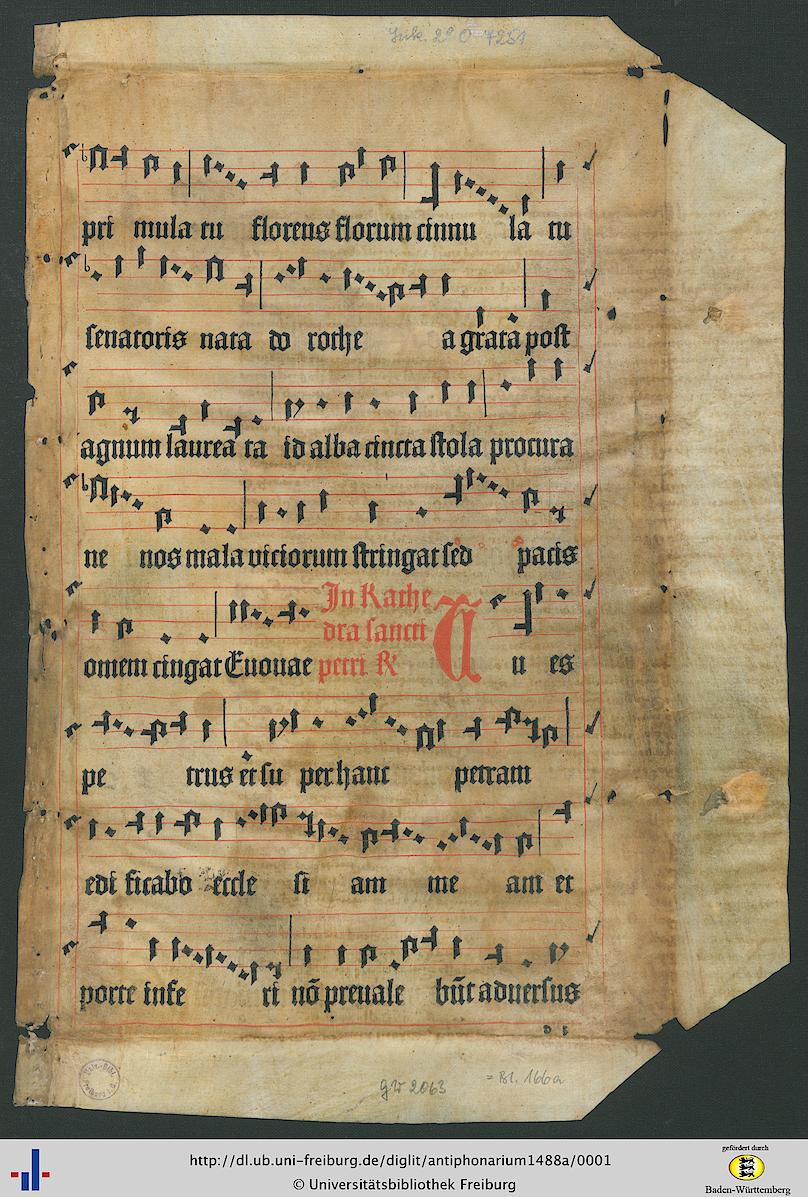 Ink. 2° O 7251
pri mula tu florens florum cinnu la tu
senatoris nata do rothe a grata post
agnum laurea ta id alba cincta stola procura
ne nos mala viciorum stringat sed pacis
In Kathe
dra sancti
omem cingat Euouae petri R T u es
pe trus et su per hanc petram
edi ficabo eccle si am me am et
porte infe ri nō preuale būt aduersus
GW 2063
= Bl. 166a
http://dl.ub.uni-freiburg.de/diglit/antiphonarium1488a/0001
© Universitätsbibliothek Freiburg
gefördert durch
Baden-Württemberg